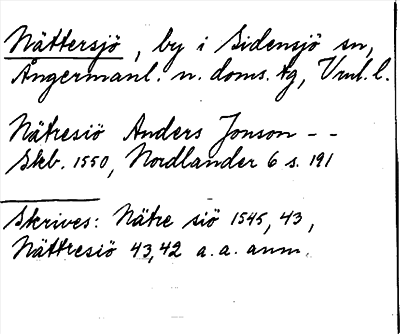 Nättersjö, by i Sidensjö sn,
Ångermanl. n. doms. tg, Vnl. l.
Nätresiö Anders Jonson - -
Skb. 1550, Nordlander 6 s. 191
Skrives: Nätre siö 1545, 43,
Nättresiö 43, 42 a. a. anm.